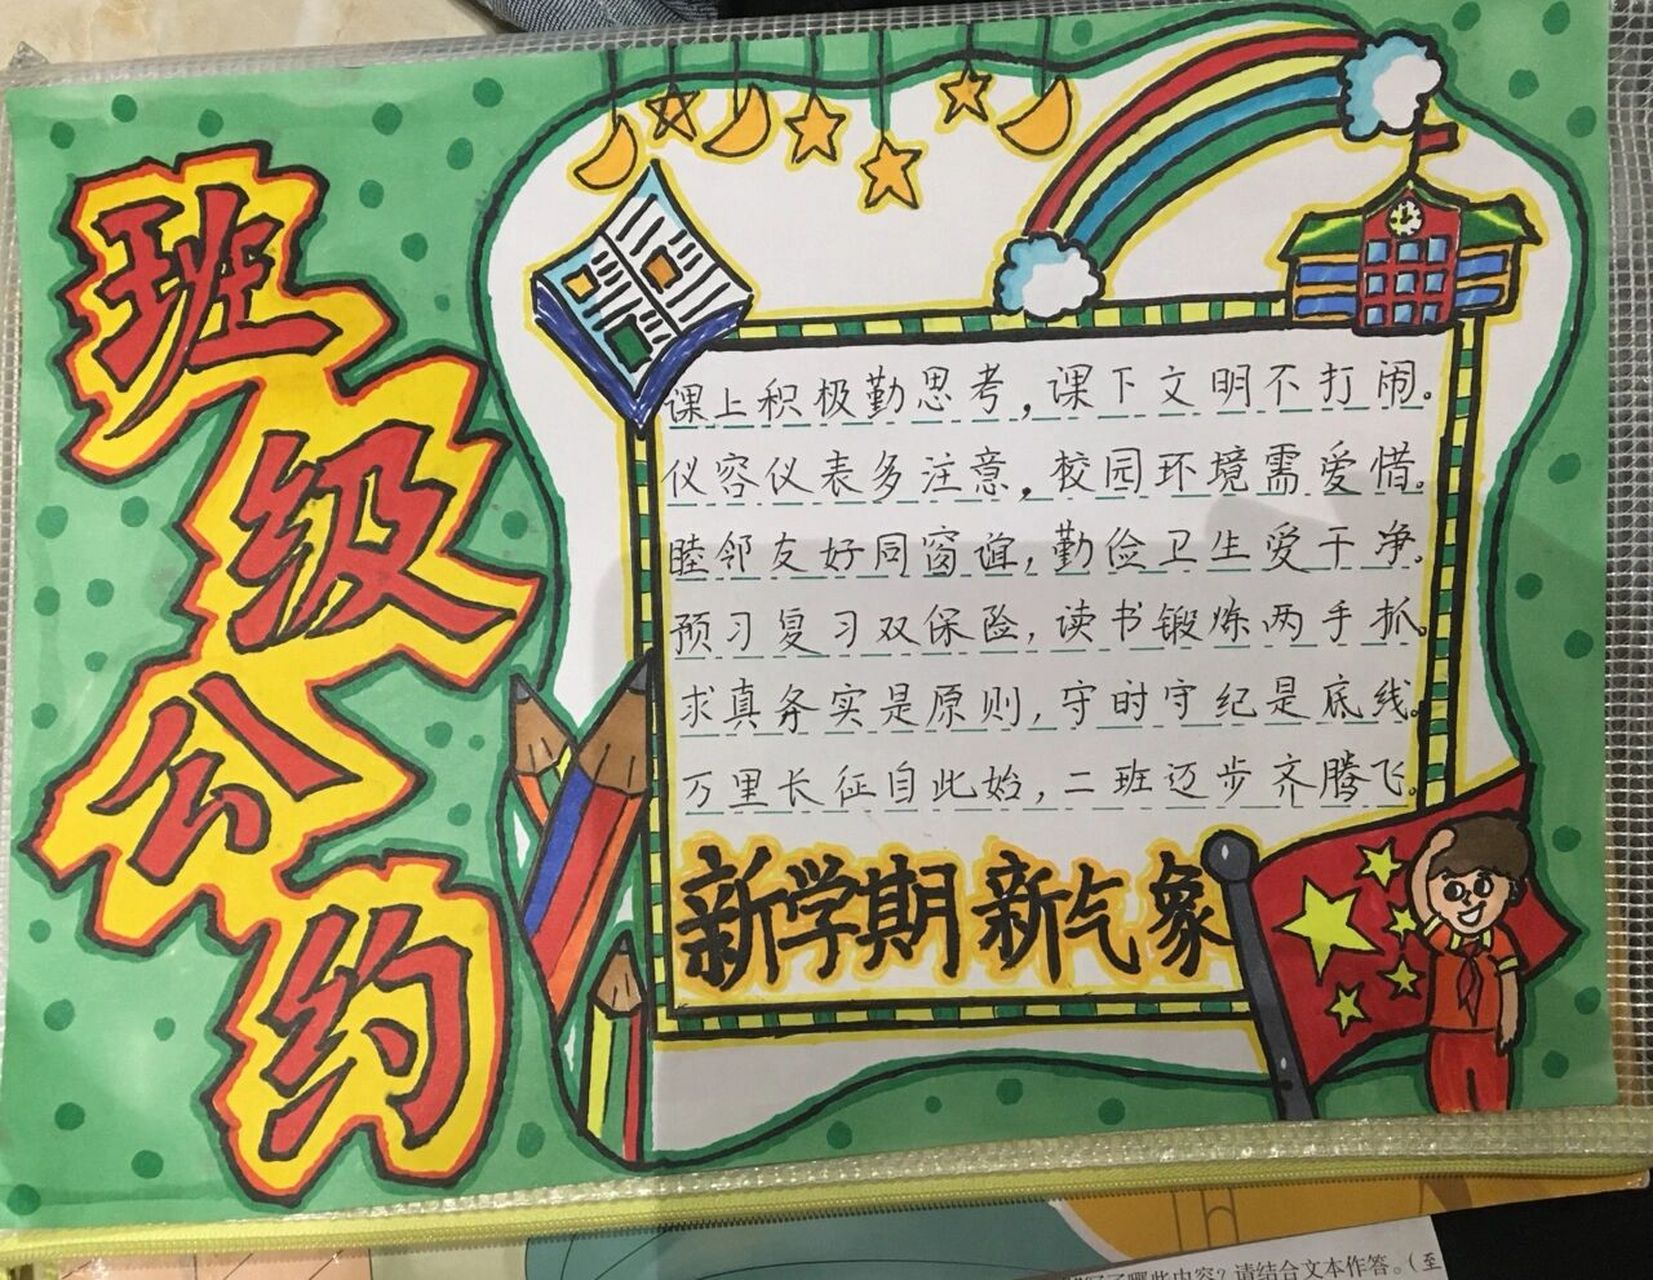 班级公约
课上积极勤思考，课下文明不打闹。
仪容仪表多注意，校园环境需爱惜。
睦邻友好同窗谊，勤俭卫生爱干净。
预习复习双保险，读书锻炼两手抓。
求真务实是原则，守时守纪是底线。
万里长征自此始，二班迈步齐腾飞。
新学期新气象
哪些内容？请结合文本作答。（至